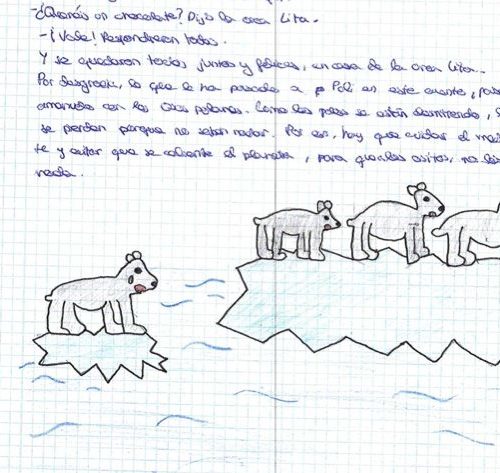 -¿Queréis un chocolate? Dijo la orca Lita.
-¡Vale! Respondieron todos.
Y se quedaron todos juntos y felices, en casa de la orca Lita.
Por desgracia, lo que le ha pasado a Poli en este cuento, pasa
a menudo con los osos polares. Como los polos se están derritiendo,
se pierden porque no saben nadar. Por eso, hay que cuidar el me
te y evitar que se caliente el planeta, para que a los ositos, no les
nada.